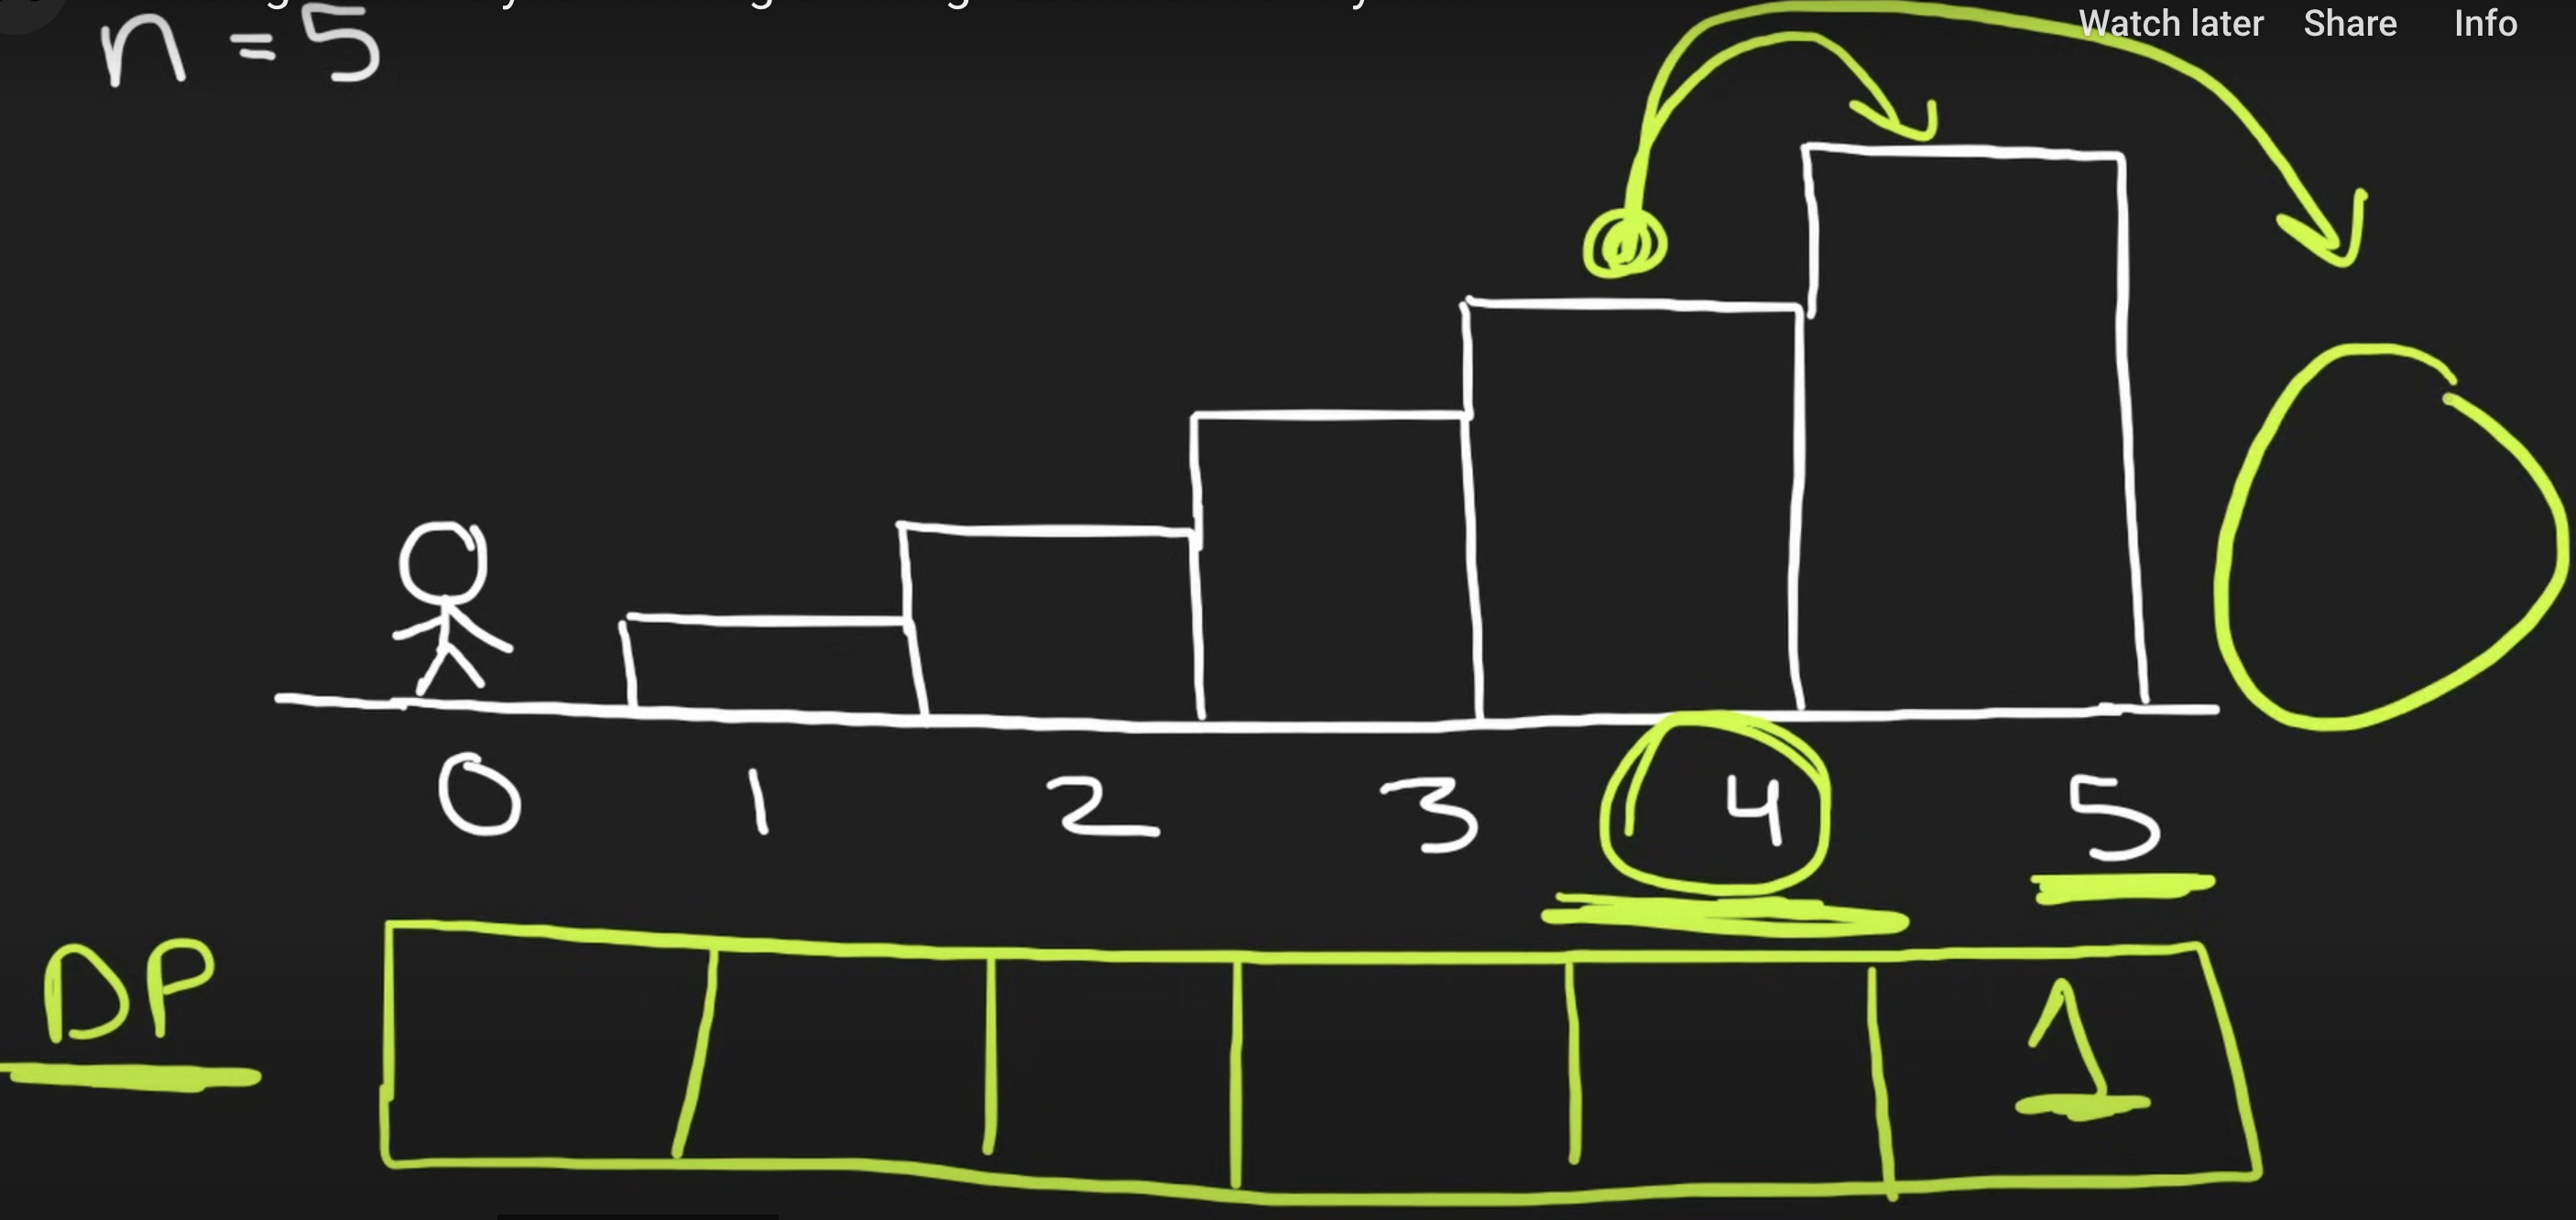 Watch later Share Info
n = 5
0 1 2 3 4 5
DP
1